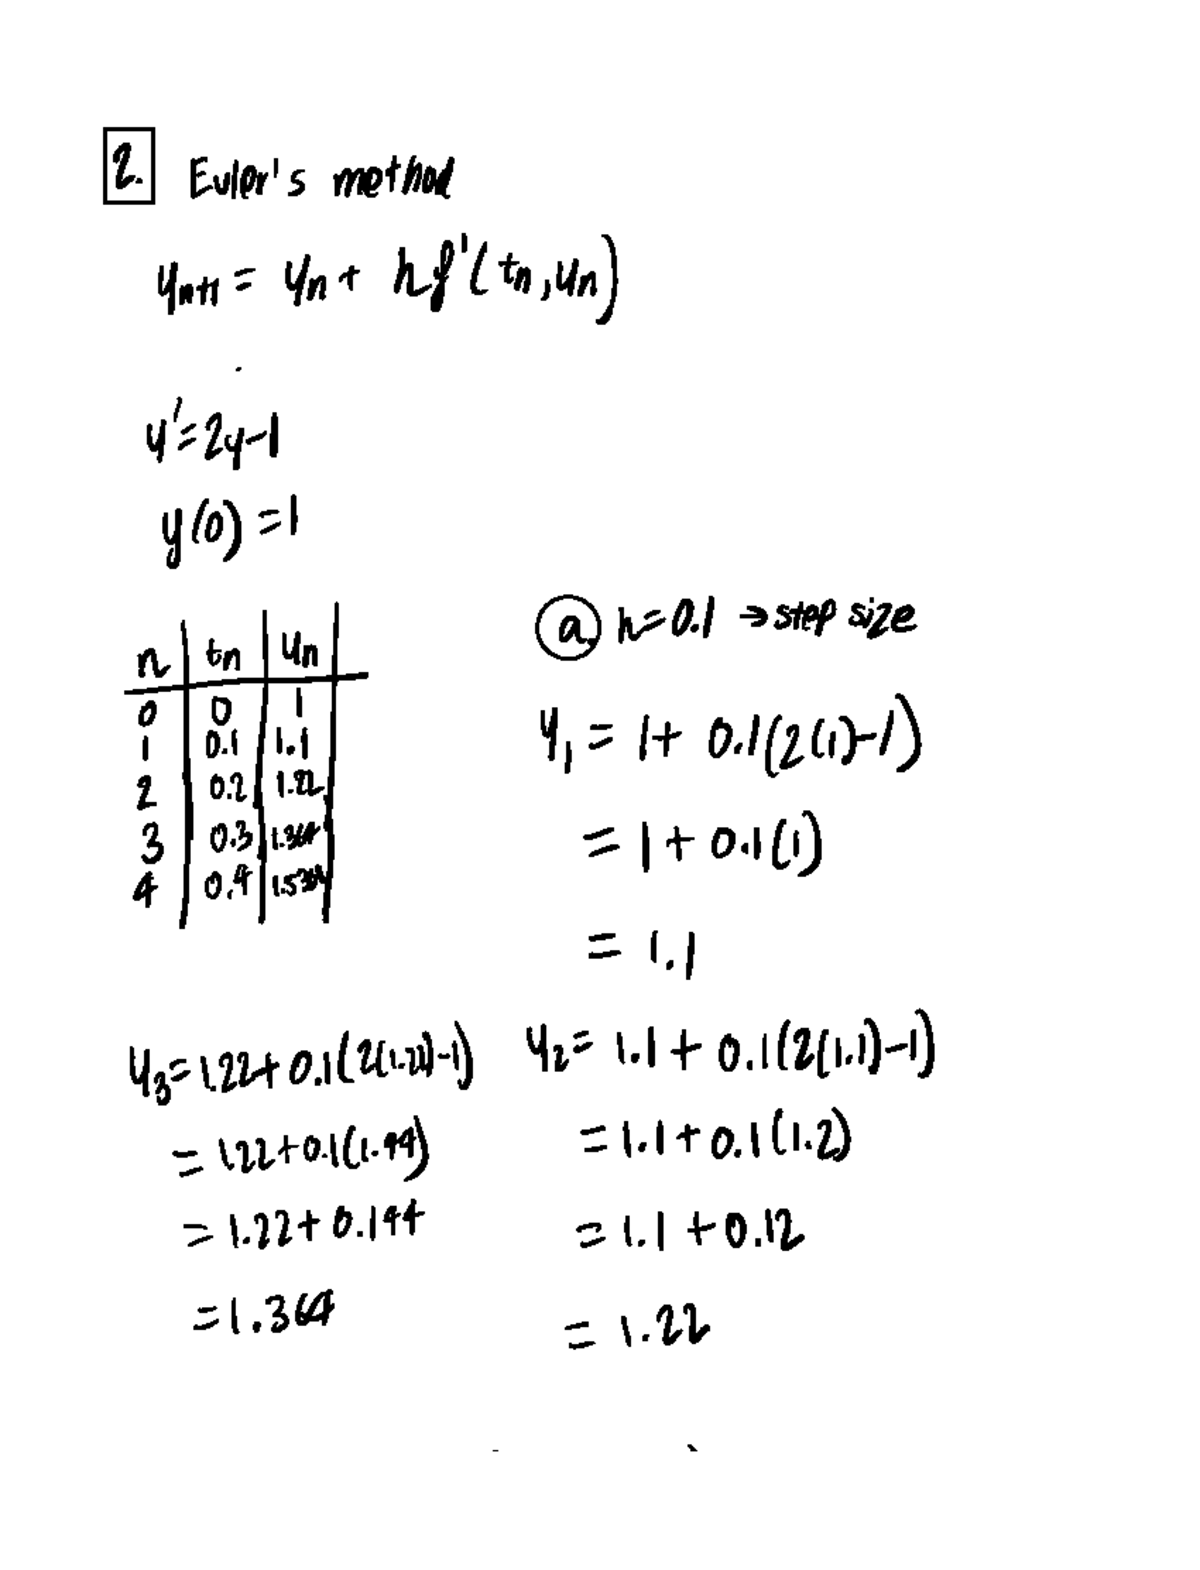 2. Euler's method
yn+1 = yn + hf'(tn, yn)
y' = 2y-1
y(0) = 1
n tn yn
0 0 1
1 0.1 1.1
2 0.2 1.22
3 0.3 1.364
4 0.4
a. h=0.1 → step size
y1 = 1+ 0.1(2(1)-1)
= 1 + 0.1(1)
= 1.1
y2 = 1.1 + 0.1(2(1.1)-1)
= 1.1 + 0.1(1.2)
= 1.1 + 0.12
= 1.22
y3 = 1.22 + 0.1(2(1.22)-1)
= 1.22 + 0.1(1.44)
= 1.22 + 0.144
= 1.364